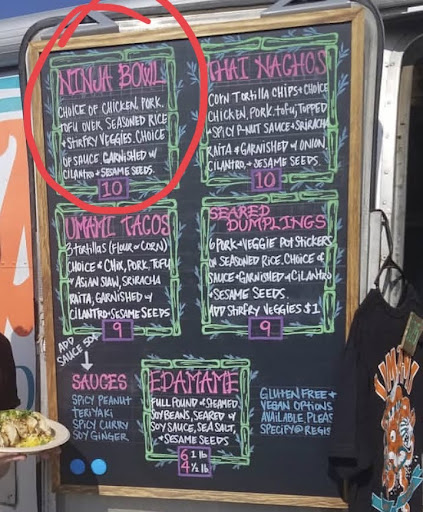 NINJA BOWL
CHOICE OF CHICKEN, PORK,
TOFU OVER SEASONED RICE
& STIRFRY VEGGIES. CHOICE
OF SAUCE, GARNISHED W/
CILANTRO & SESAME SEEDS.
10
THAI NACHOS
CORN TORTILLA CHIPS & CHOICE
CHICKEN, PORK, TOFU, TOPPED
W/ SPICY P-NUT SAUCE & SRIRACHA
RAITA & GARNISHED W/ ONION,
CILANTRO, & SESAME SEEDS.
10
UMAMI TACOS
3 TORTILLAS (FLOUR OR CORN)
CHOICE OF CHIX, PORK, TOFU
W/ ASIAN SLAW, SRIRACHA
RAITA, GARNISHED W/
CILANTRO & SESAME SEEDS
9
SEARED
DUMPLINGS
6 PORK & VEGGIE POT STICKERS
ON SEASONED RICE, CHOICE OF
SAUCE & GARNISHED W/ CILANTRO
& SESAME SEEDS.
ADD STIRFRY VEGGIES $1
9
ADD
SAUCE 50¢
SAUCES
SPICY PEANUT
TERIYAKI
SPICY CURRY
SOY GINGER
EDAMAME
FULL POUND OF STEAMED
SOYBEANS, SEARED W/
SOY SAUCE, SEA SALT,
& SESAME SEEDS
6 1 lb
4 ½ lb
GLUTEN FREE &
VEGAN OPTIONS
AVAILABLE, PLEAS
SPECIFY @ REGIS